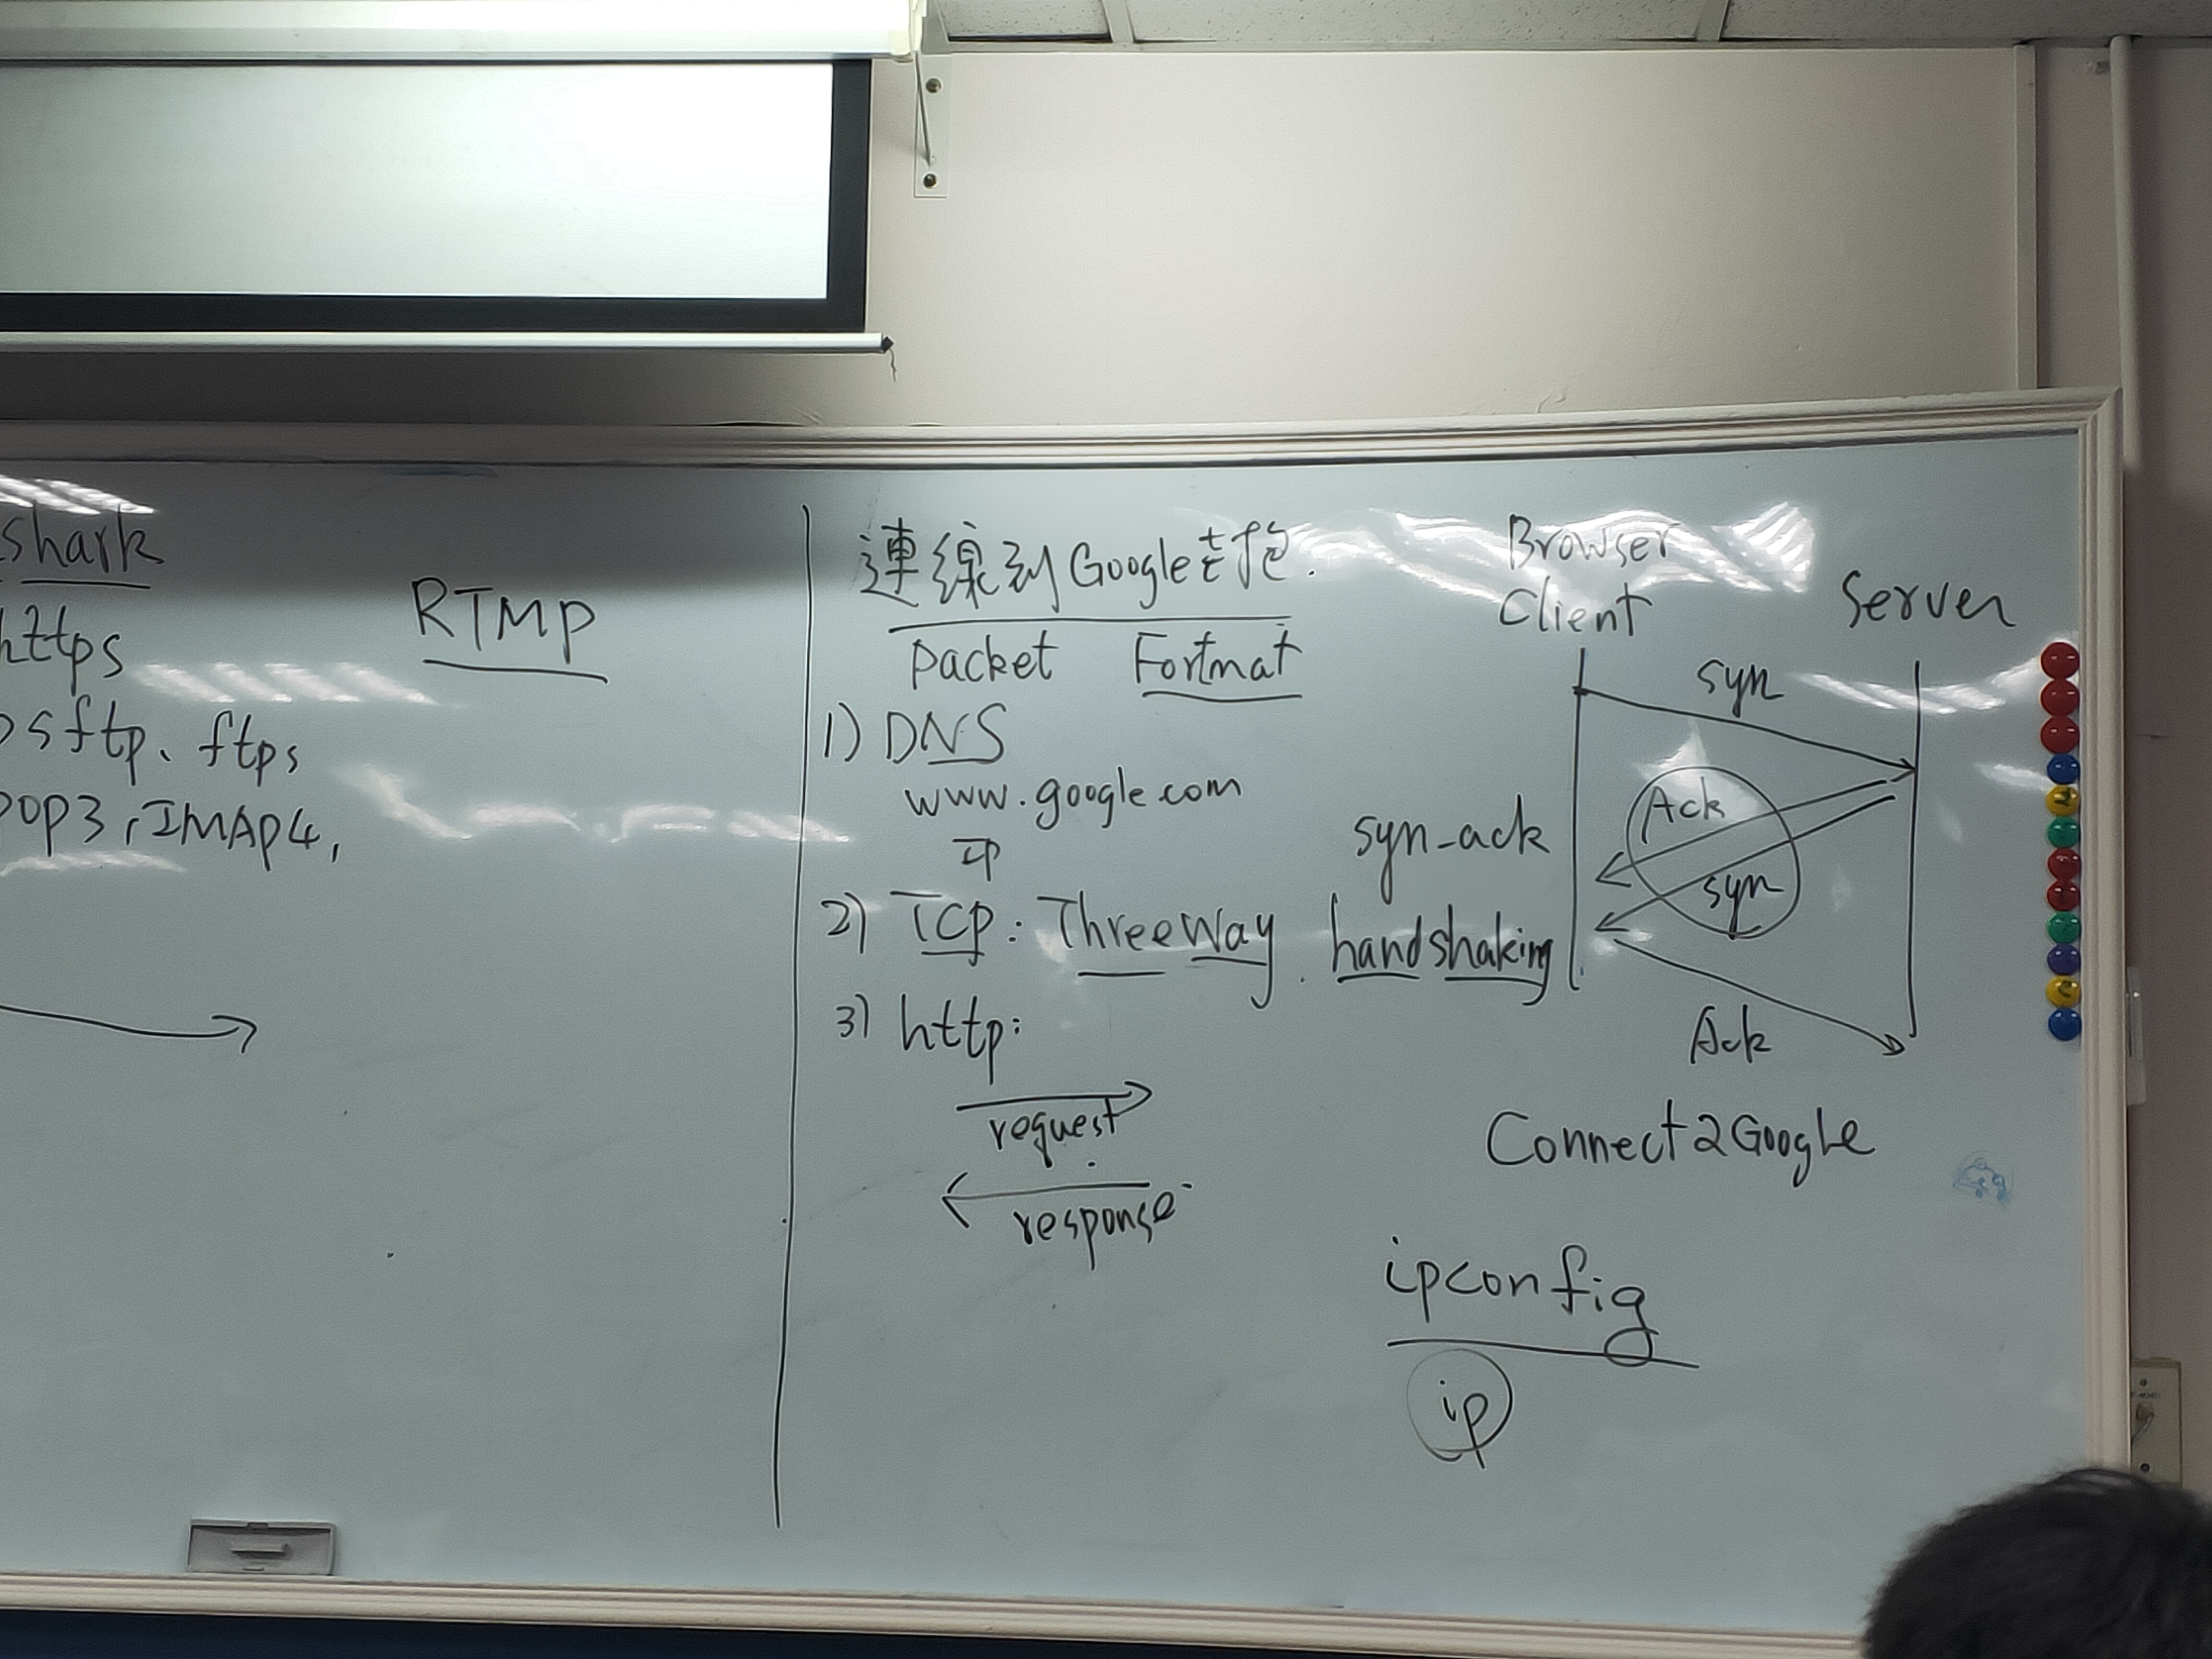 shark
https
sftp、ftps
POP3, IMAP4,
RTMP
連線到Google去抱.
packet Fortmat
1) DNS
www.google.com
IP
2) TCP: Three Way . handshaking
3) http:
request
response
Browser
Client
Server
syn
Ack
syn
syn-ack
Ack
Connect2Google
ipconfig
ip